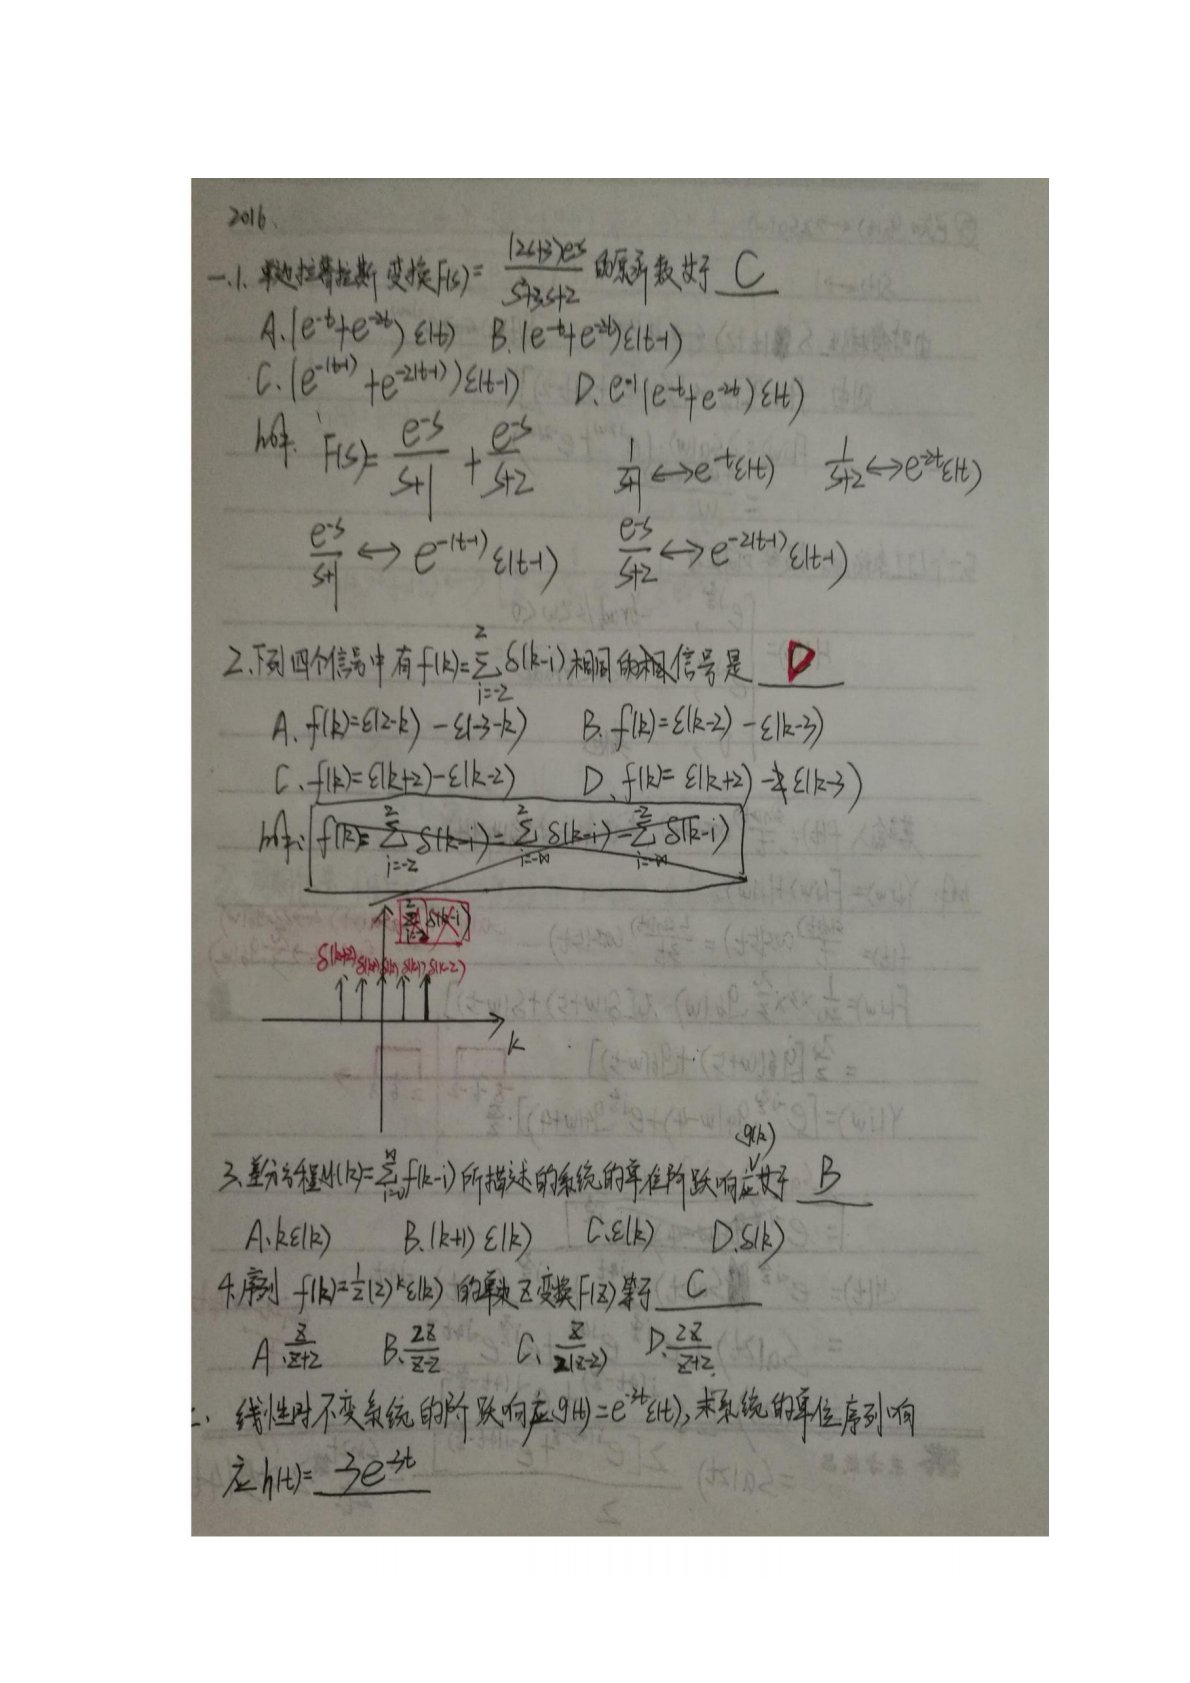 2016.
一.1. 单边拉普拉斯变换F(s)= (2s+3)e^-s / s²+3s+2 的原函数等于 C
A.(e^-t+e^-2t)ε(t) B.(e^-t+e^-2t)ε(t-1)
C.(e^-(t-1)+e^-2(t-1))ε(t-1) D.e^-1(e^-t+e^-2t)ε(t)
解析: F(s)= e^-s/s+1 + e^-s/s+2 1/s+1 ↔ e^-tε(t) 1/s+2 ↔ e^-2tε(t)
e^-s/s+1 ↔ e^-(t-1)ε(t-1) e^-s/s+2 ↔ e^-2(t-1)ε(t-1)
2.下列四个信号中有f(k)=∑ 2 i=-2 δ(k-i)相同的信号是 D
A. f(k)=ε(2-k) -ε(-3-k) B. f(k)=ε(k-2) -ε(k-3)
C. f(k)=ε(k+2)-ε(k-2) D. f(k)= ε(k+2) -ε(k-3)
解析: f(k)= ∑ 2 i=-2 δ(k-i)= ∑ 2 i=-∞ δ(k-i) - ∑ -2 i=-∞ δ(k-i)
∑ 2 i=-2 δ(k-i)
δ(k+2) δ(k+1) δ(k) δ(k-1) δ(k-2)
k
g(k)
3.差分方程y(k)=∑ ∞ i=0 f(k-i)所描述的系统的单位阶跃响应等于 B
A.kε(k) B.(k+1)ε(k) C.ε(k) D.δ(k)
4.序列 f(k)=1/2(2)^kε(k) 的单边Z变换F(Z)等于 C
A. Z/Z+2 B. 2Z/Z-2 C. Z/2(Z-2) D. 2Z/Z+2
二. 线性时不变系统的阶跃响应g(t)=e^-3tε(t),求系统的单位序列响
应h(t)= 3e^-3t